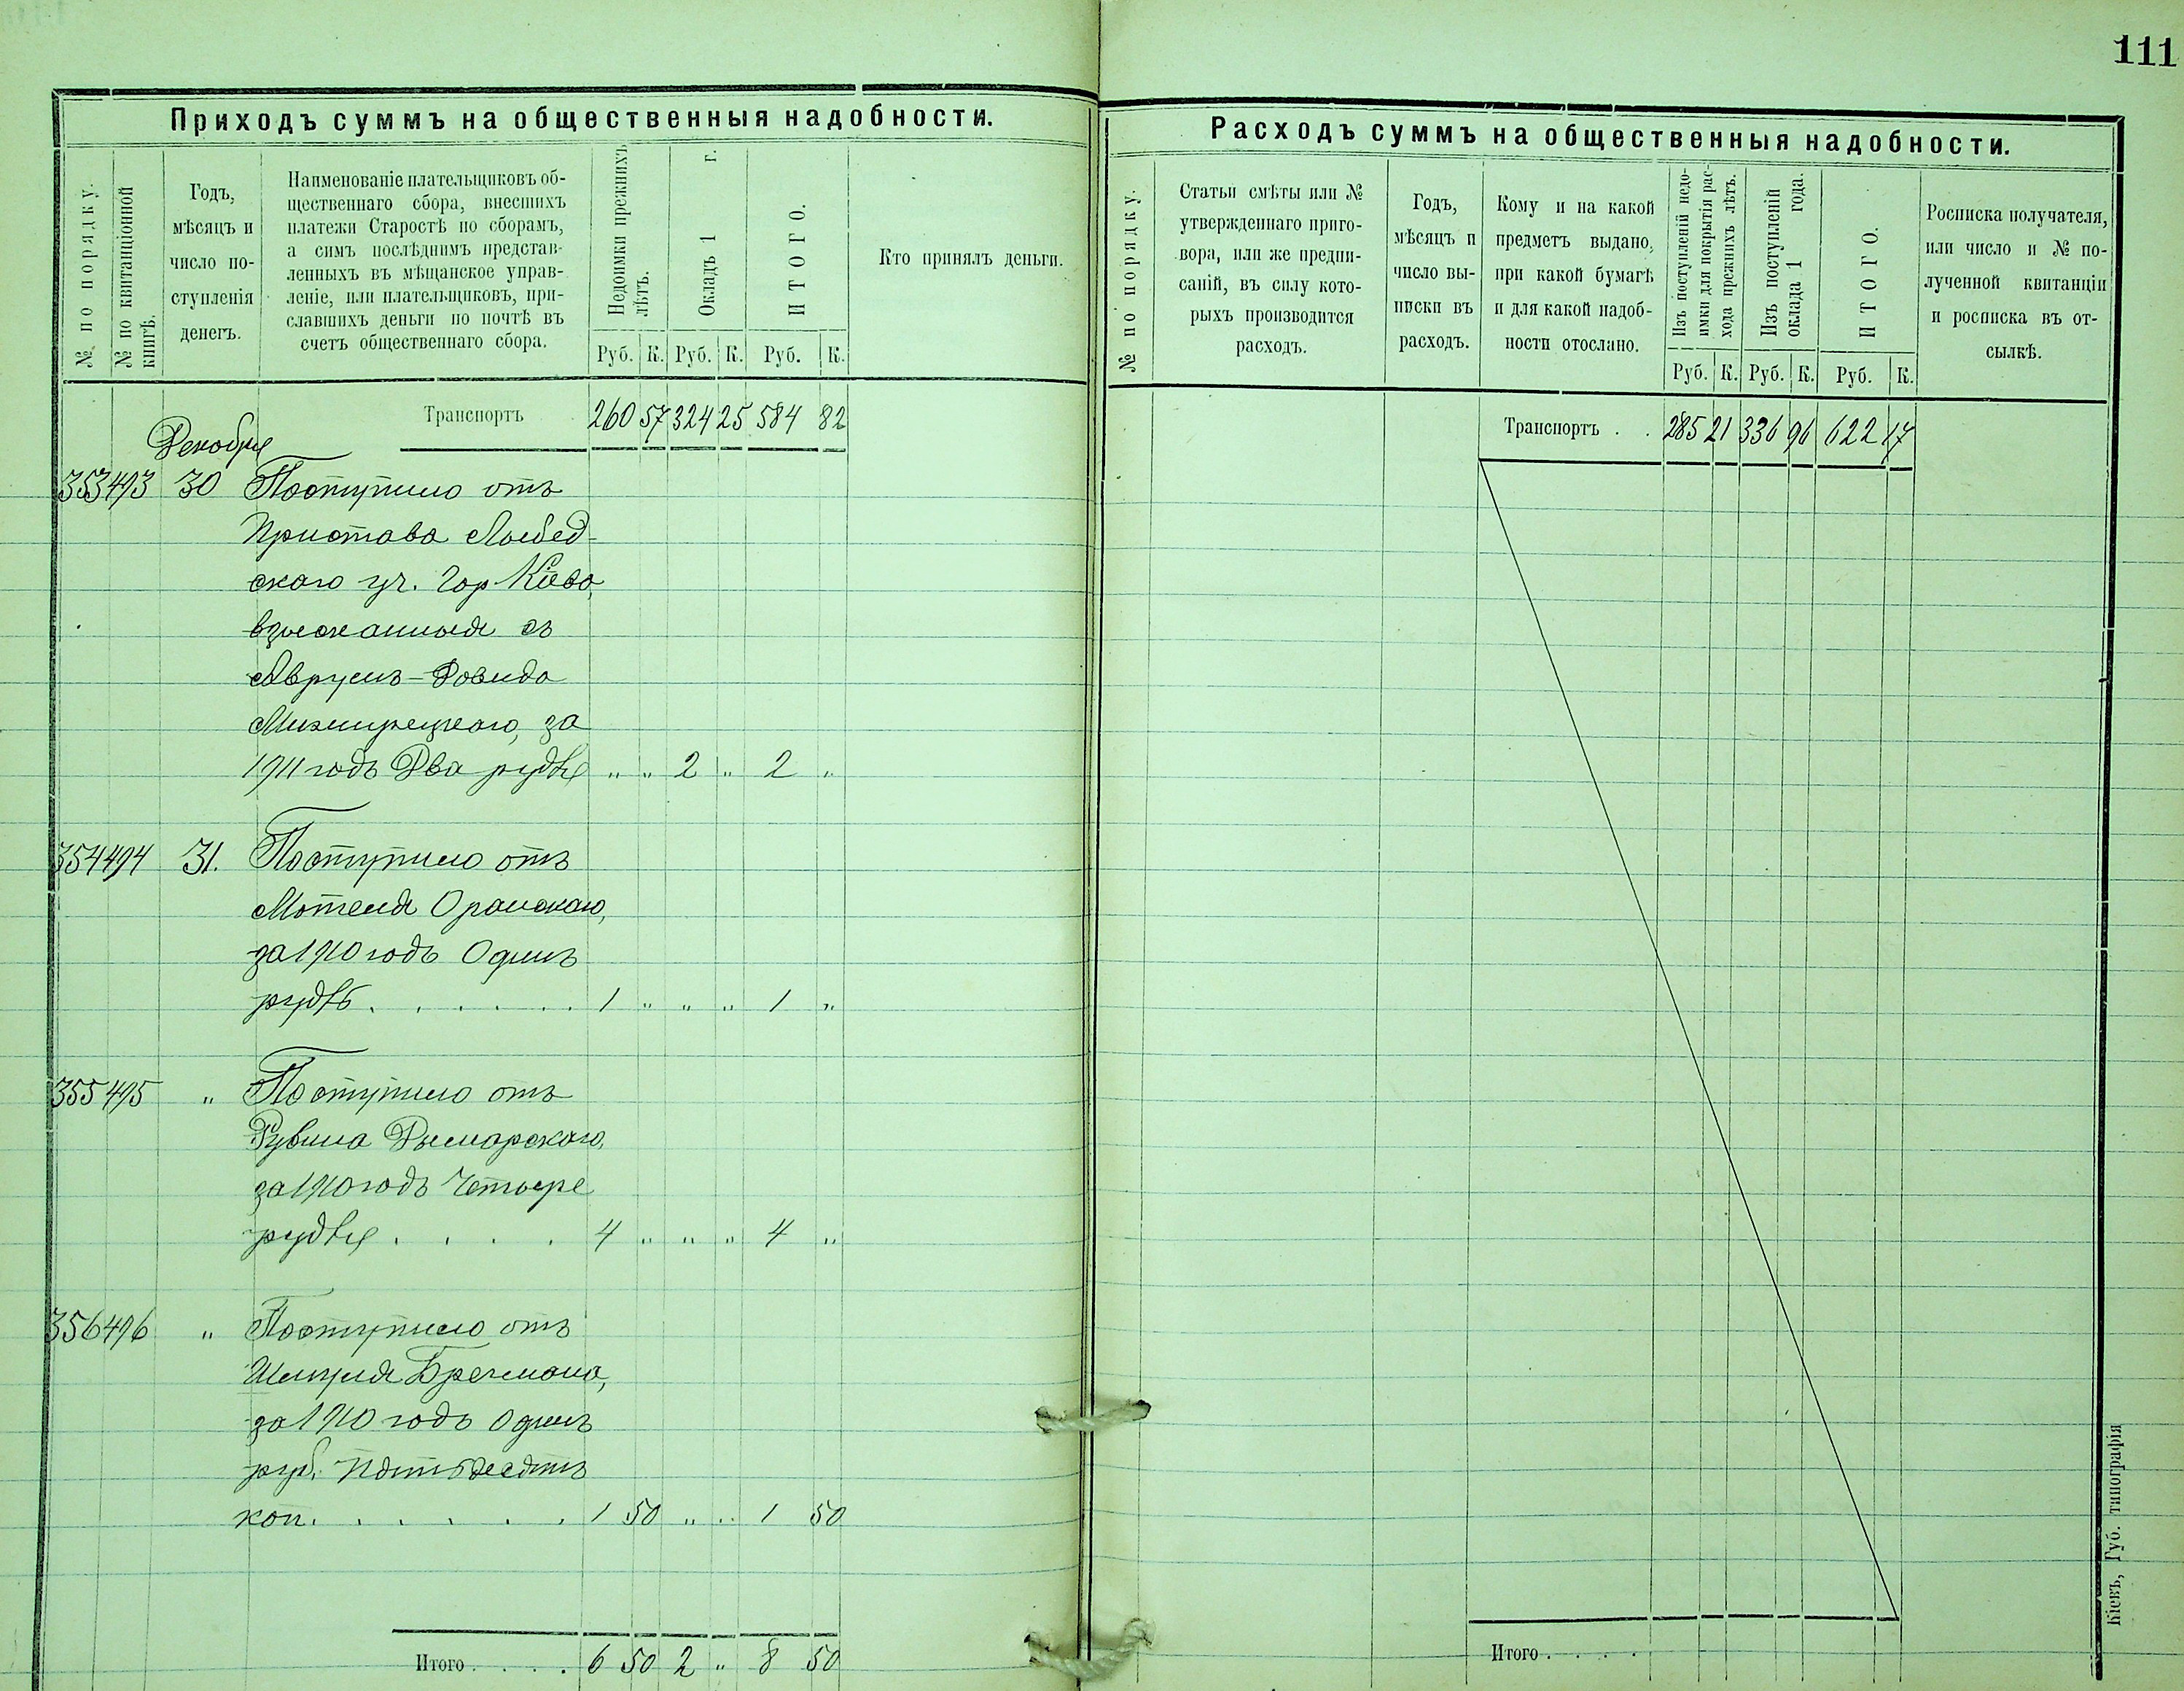 111
Приходъ суммъ на общественныя надобности.
№ по порядку.
№ по квитанціонной книгѣ.
Годъ,
мѣсяцъ и
число по-
ступленія
денегъ.
Наименованіе плательщиковъ об-
щественнаго сбора, внесшихъ
платежи Старостѣ по сборамъ,
а симъ послѣднимъ представ-
ленныхъ въ мѣщанское управ-
леніе, или плательщиковъ, при-
славшихъ деньги по почтѣ въ
счетъ общественнаго сбора.
Недоимки прежнихъ
лѣтъ.
Окладъ 1 г.
ИТОГО.
Руб. К. Руб. К. Руб. К.
Кто принялъ деньги.
Транспортъ 260 57 324 25 584 82
Декабря
353 493 30 Поступило отъ
Пристава Лыбед-
скаго уч. Гор Кіева,
взысканныя съ
Аврумъ-Довида
за
1911 годъ Два рубля " " 2 " 2 "
354 494 31. Поступило отъ
Мотеля Оранскаго,
за 1910 годъ Одинъ
рубль . . . . . . 1 " " " 1 "
355 495 " Поступило отъ
Рувина Дымарскаго,
за 1910 годъ Четыре
рубля . . . . 4 " " " 4 "
356 496 " Поступило отъ
Шмуля Брегмана,
за 1910 годъ Одинъ
руб. Пятьдесятъ
коп. . . . . . 1 50 " " 1 50
Итого . . . . 6 50 2 " 8 50
Расходъ суммъ на общественныя надобности.
№ по порядку.
Статьи смѣты или №
утвержденнаго приго-
вора, или же предпи-
саній, въ силу кото-
рыхъ производится
расходъ.
Годъ,
мѣсяцъ и
число вы-
писки въ
расходъ.
Кому и на какой
предметъ выдано,
при какой бумагѣ
и для какой надоб-
ности отослано.
Изъ поступленій недо-
имки для покрытія рас-
хода прежнихъ лѣтъ.
Изъ поступленій
оклада 1 года.
ИТОГО.
Руб. К. Руб. К. Руб. К.
Росписка получателя,
или число и № по-
лученной квитанціи
и росписка въ от-
сылкѣ.
Транспортъ . . 285 21 336 96 622 17
Итого . . . .
Кіевъ, Губ. типографія